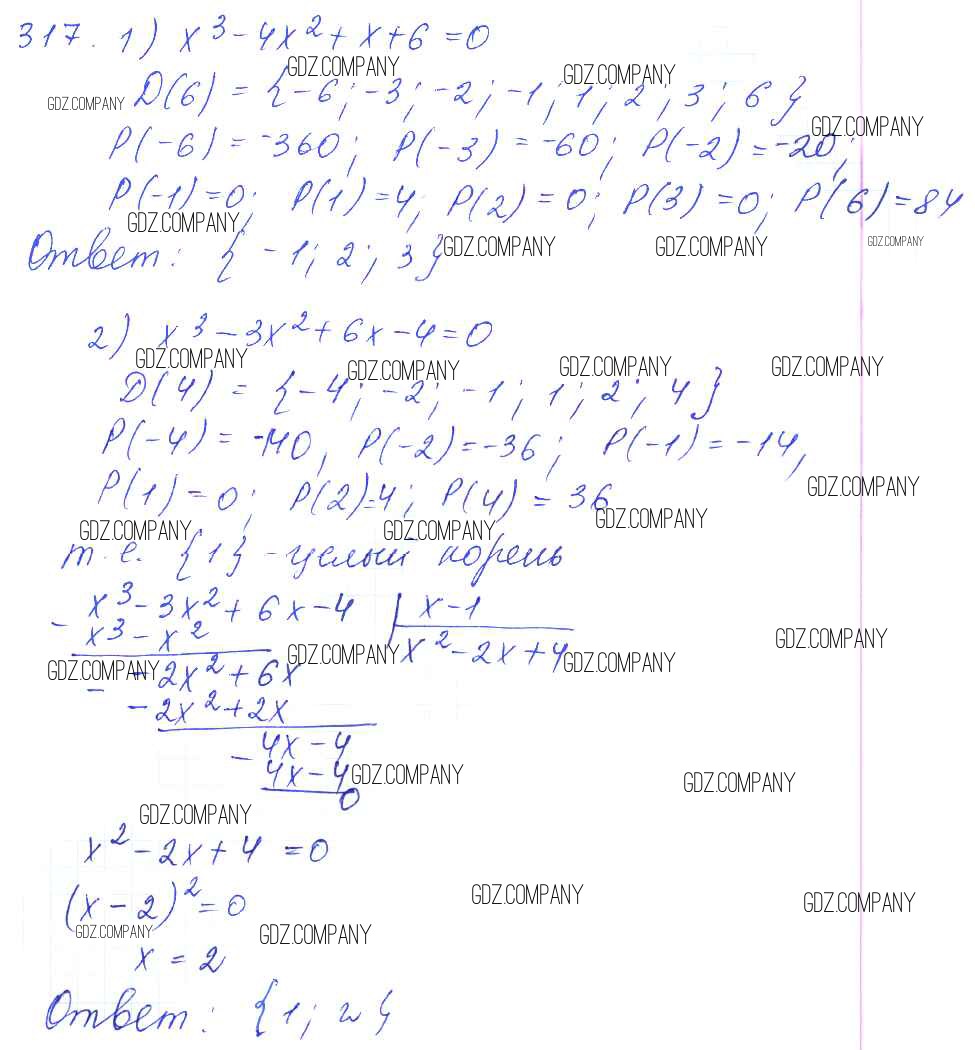 317. 1) x³ - 4x² + x + 6 = 0
GDZ.COMPANY GDZ.COMPANY
GDZ.COMPANY D(6) = {-6; -3; -2; -1; 1; 2; 3; 6}
GDZ.COMPANY
P(-6) = -360; P(-3) = -60; P(-2) = -20;
P(-1) = 0; P(1) = 4; P(2) = 0; P(3) = 0; P(6) = 84
GDZ.COMPANY
Ответ: {-1; 2; 3} GDZ.COMPANY GDZ.COMPANY GDZ.COMPANY
2) x³ - 3x² + 6x - 4 = 0
GDZ.COMPANY GDZ.COMPANY GDZ.COMPANY GDZ.COMPANY
D(4) = {-4; -2; -1; 1; 2; 4}
P(-4) = -140, P(-2) = -36; P(-1) = -14,
P(1) = 0; P(2)=4; P(4) = 36 GDZ.COMPANY
GDZ.COMPANY GDZ.COMPANY GDZ.COMPANY
т.е. {1} - целый корень
- x³ - 3x² + 6x - 4 | x - 1
x³ - x² GDZ.COMPANY x² - 2x + 4 GDZ.COMPANY GDZ.COMPANY
GDZ.COMPANY - -2x² + 6x
-2x² + 2x
- 4x - 4
4x - 4 GDZ.COMPANY GDZ.COMPANY
0
GDZ.COMPANY
x² - 2x + 4 = 0
(x - 2)² = 0 GDZ.COMPANY GDZ.COMPANY
GDZ.COMPANY GDZ.COMPANY
x = 2
Ответ: {1; 2}